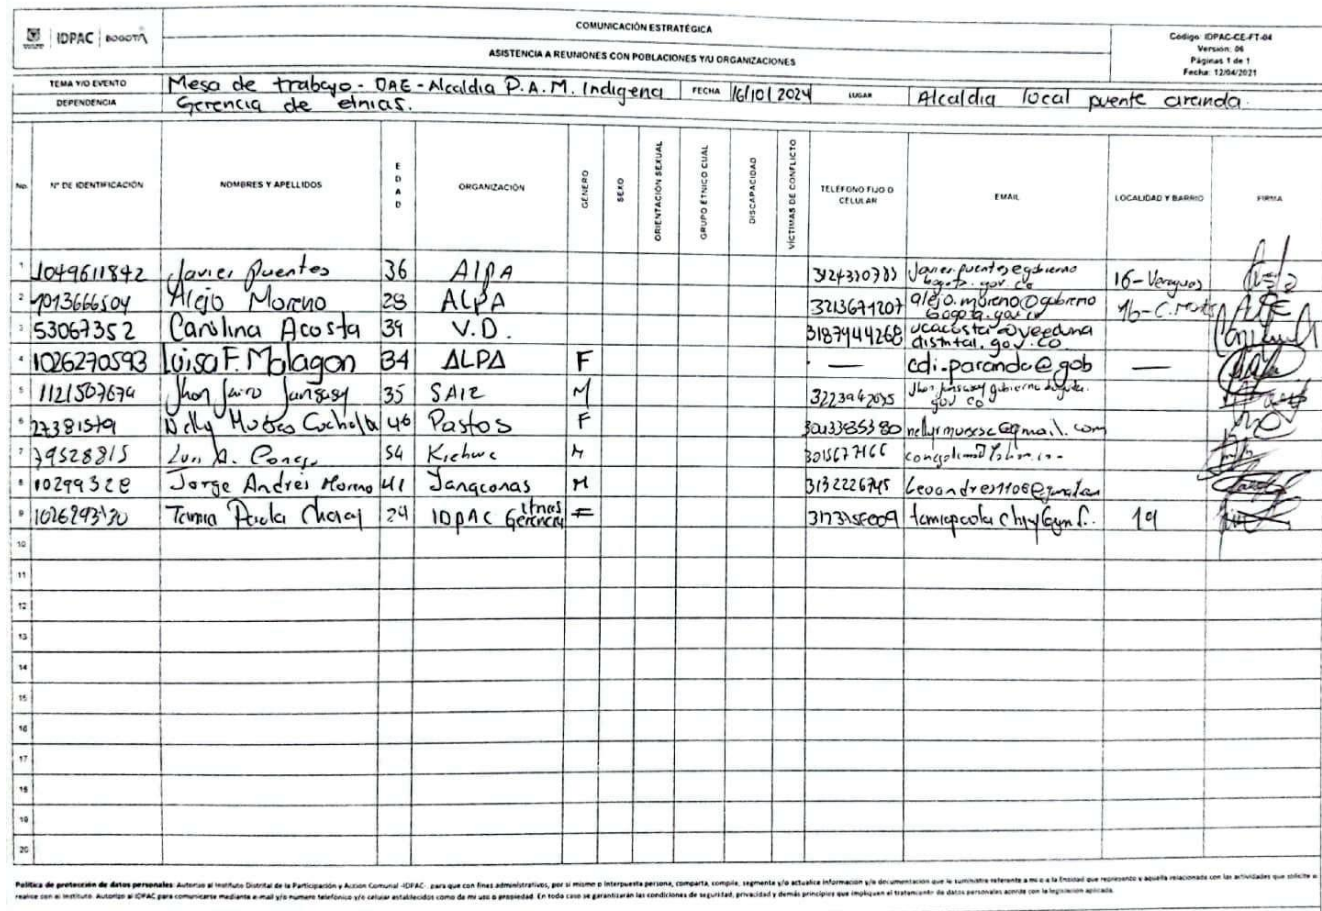 IDPAC BOGOTÁ
COMUNICACIÓN ESTRATÉGICA
ASISTENCIA A REUNIONES CON POBLACIONES Y/U ORGANIZACIONES
Código: IDPAC-CE-FT-04
Versión: 06
Páginas 1 de 1
Fecha: 12/04/2021
TEMA Y/O EVENTO Mesa de trabajo - OAE - Alcaldia P.A.M. Indigena FECHA 16/10/2024 LUGAR Alcaldia local puente aranda.
DEPENDENCIA Gerencia de etnias.
No. N° DE IDENTIFICACIÓN NOMBRES Y APELLIDOS EDAD ORGANIZACIÓN GÉNERO SEXO ORIENTACIÓN SEXUAL GRUPO ÉTNICO CUAL DISCAPACIDAD VÍCTIMAS DE CONFLICTO TELÉFONO FIJO O CELULAR EMAIL LOCALIDAD Y BARRIO FIRMA
1 1049611842 Javier Puentes 36 AlpA 3124330783 Javier.puentes@gobierno bogota.gov.co 16-Veraguas
2 1013666504 Alejo Moreno 28 ALPA 3213671207 alejo.moreno@gobierno bogota.gov.co 16-C.
3 53067352 Carolina Acosta 39 V.D. 3187944268 ucacosta@veeduria distrital.gov.co
4 1026270593 Luisa F. Malagon 34 ALPA F — cdi.paranda@gob —
5 1121507674 Jhon Jairo 35 SAIZ M
6 27381579 Nelly 46 Pastos F 3013385380 nellyrmuese@gmail.com
7 79528815 Luis A. 54 Kichwa M
8 10299328 Jorge Andrés Moreno 41 Yanaconas M 3132226745
9 Paola 29 IDPAC etnias Gerencia F 19
10
11
12
13
14
15
16
17
18
19
20
Política de protección de datos personales: Autorizo al Instituto Distrital de la Participación y Acción Comunal -IDPAC- para que con fines administrativos, por si mismo o interpuesta persona, comparta, compile, segmenta y/o actualice información y/o documentación que le suministro referente a mi o a la Entidad que represento y aquella relacionada con las actividades que solicite o
realice con el Instituto. Autorizo al IDPAC para comunicarse mediante e-mail y/o numero telefónico y/o celular establecidos como de mi uso o propiedad. En todo caso se garantizarán las condiciones de seguridad, privacidad y demás principios que impliquen el tratamiento de datos personales acorde con la legislación aplicada.